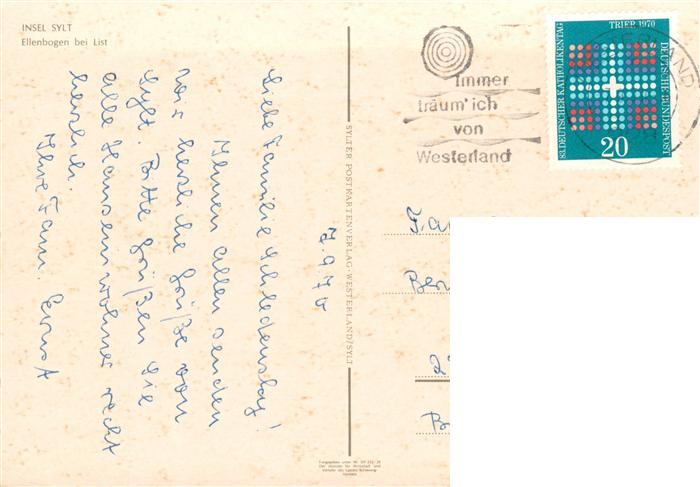 INSEL SYLT
Ellenbogen bei List
7.9.70
Liebe Familie
Ihnen allen senden
wir herzliche Grüße von
Sylt. Bitte Grüßen Sie
alle Hauseinwohner recht
herzlich.
Ihre Fam. Ernst
SYLTER POSTKARTENVERLAG · WESTERLAND/SYLT
Immer
träum' ich
von
Westerland
TRIER 1970
83. DEUTSCHER KATHOLIKENTAG
DEUTSCHE BUNDESPOST
20